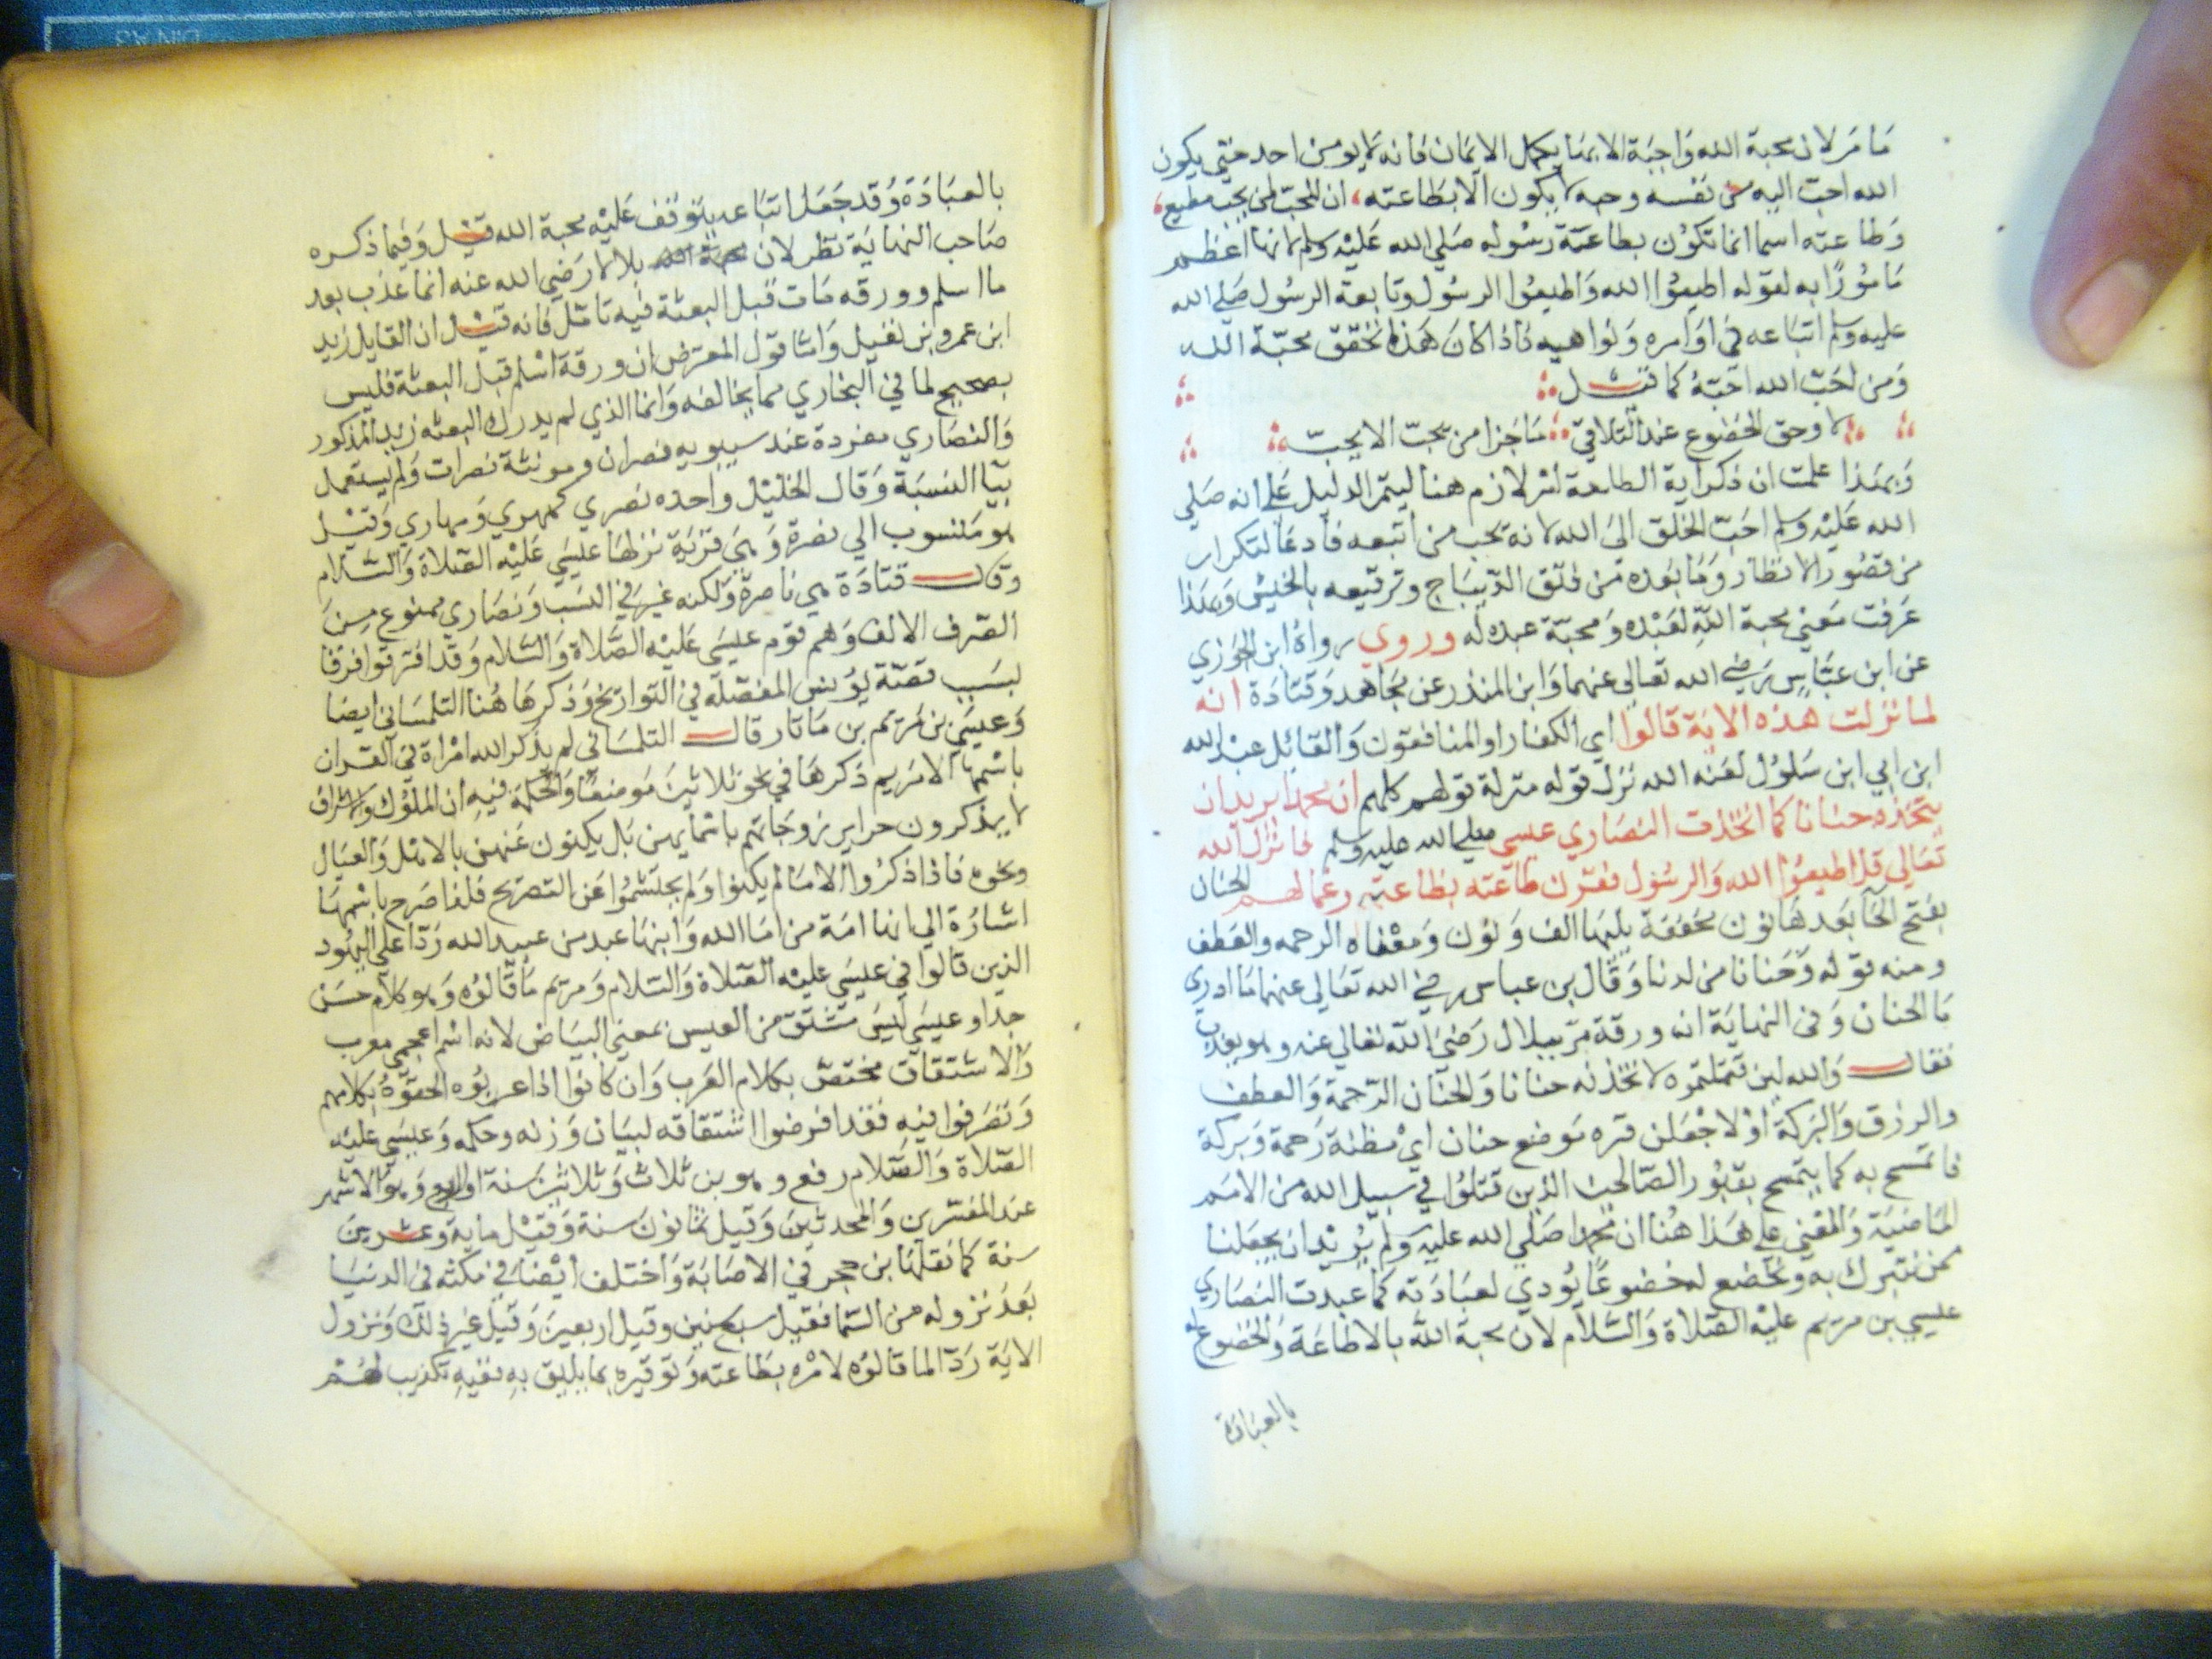 ما مر لان محبة الله واجبة الايمنا يكمل الايمان فانه لا يومن احد حتي يكون
الله احب اليه من نفسه وحبه لا يكون الا بطاعته ان المحب لمن يحب مطيع
وطاعته اسما انما تكون بطاعة رسوله صلي الله عليه وسلم لانها اعظم
مامورا به لقوله اطيعوا الله واطيعوا الرسول وتابعة الرسول صلي الله
عليه وسلم اتباعه في اوامره ونواهيه فاذا كان هذا تحقق محبة الله
ومن احب الله احبه كما قيل
لا وحق الخضوع عند التلاقي ما جزا من يحب الا يحب
وبهذا علمت ان ذكر اية الطاعة امر لازم هنا ليتم الدليل علي انه صلي
الله عليه وسلم احب الخلق الي الله لانه يحب من اتبعه فادعا لتكرار
من قصور الانظار وما بعده من فلق الديباج وترقيعه بالخيش وبهذا
عرفت معني محبة الله لعبده ومحبة عبده له وروي رواه ابن الجوزي
عن ابن عباس رضي الله تعالي عنهما وابن المنذر عن مجاهد وقتادة انه
لما نزلت هذه الاية قالوا اي الكفار او المنافقون والقائل عبد الله
ابن ابي ابن سلول لعنه الله نزل قوله منزلة قولهم كلهم ان محمدا يريد ان
يتخذه حنانا كما اتخذت النصاري عيسي صلي الله عليه وسلم فانزل الله
تعالي قل اطيعوا الله والرسول فقرن طاعته بطاعته رغما لهم الحنان
بفتح الحا بعدها نون مخففة يليها الف ونون ومعناه الرحمه والعطف
ومنه قوله وحنانا من لدنا وقال بن عباس رضي الله تعالي عنهما ما ادري
ما الحنان وفي النهاية انه ورقة مر ببلال رضي الله تعالي عنه وهو يعذب
فقال والله لين قتلتموه لاتخذنه حنانا والحنان الرحمة والعطف
والرزق والبركة او لاجعلن قبره موضع حنان اي مظنة رحمة وبركة
فاتمسح به كما يتمسح بقبور الصالحين الذين قتلوا في سبيل الله من الامم
الماضية والمعني علي هذا هنا ان محمدا صلي الله عليه وسلم يريد ان يجعلنا
ممن نتبرك به ونخضع له خضوعا يؤدي لعبادته كما عبدت النصاري
عليسي بن مريم عليه الصلاة والسلام لان محبة الله بالاطاعة والخضوع له
بالعبادة
بالعبادة وقد جعل اتباعه يتوقف عليه محبة الله قيل وفيما ذكره
صاحب النهاية نظر لان بلالا رضي الله عنه انما عذب بعد
ما اسلم وورقه مات قبل البعثة فيه تامل فانه قيل ان القايل زيد
ابن عمرو بن نفيل واما قول المعترض ان ورقة اسلم قبل البعثة فليس
بصحيح لما في البخاري مما يخالفه وانما الذي لم يدرك البعثه زيد المذكور
والنصاري مفردة عند سيبويه نصران ومونثة نصرات ولم يستعمل
بيا النسبة وقال الخليل واحده نصري كمهري ومهاري وقيل
هو منسوب الي نصرة وهي قرية نزلها عليسي عليه الصلاة والسلام
وقال قتادة هي ناصرة ولكنه غير في النسب ونصاري ممنوع من
الصرف الالف وهم قوم عليسي عليه الصلاة والسلام وقد افترقوا فرقا
لبسبب قصة يؤنس المفصله في التواريخ وذكرها هنا التلمساني ايضا
وعيسي بن مريم بن ماتار قال التلمساني لم يذكر الله امراة في القران
باسمها الا مريم ذكرها في نحو ثلاثين موضعا والحكمة فيه ان الملوك والاشراف
لا يذكرون حراير زوجاتهم باسمايهن بل يكنون عنهن بالاهل والعيال
ونحوه فاذا ذكروا الاما لم يكنوا ولم يحتشموا عن التصريح فلهذا صرح باسمها
اشارة الي انها امة من اما الله وابنها عبد من عبيد الله ردا علي اليهود
الذين قالوا في عليسي عليه الصلاة والسلام ومريم ما قالوه وهو كلام حسن
جدا وعيسي ليس مشتق من العيس بمعني البياض لانه اسم اعجمي معرب
والاشتقاق مختص بكلام العرب وان كانوا اذا عربوه الحقوه بكلامهم
وتصرفوا فيه فقد افرضوا اشتقاقه لبيان وزنه وحكمه وعيسي عليه
الصلاة والسلام رفع وهو بن ثلاث وثلاثين سنة او اربع وهو الاشهر
عند المفسرين والمحدثين وقيل ثمانون سنة وقيل ماية وعشرين
سنة كما نقلها بن حجر في الاصابة واختلف ايضا في مكثه في الدنيا
بعد نزوله من السما فقيل سبع سنين وقيل اربعين وقيل غير ذلك ونزول
الاية ردا لما قالوه لامره بطاعته وتوقيره بما يليق به ففيه تكذيب لهم